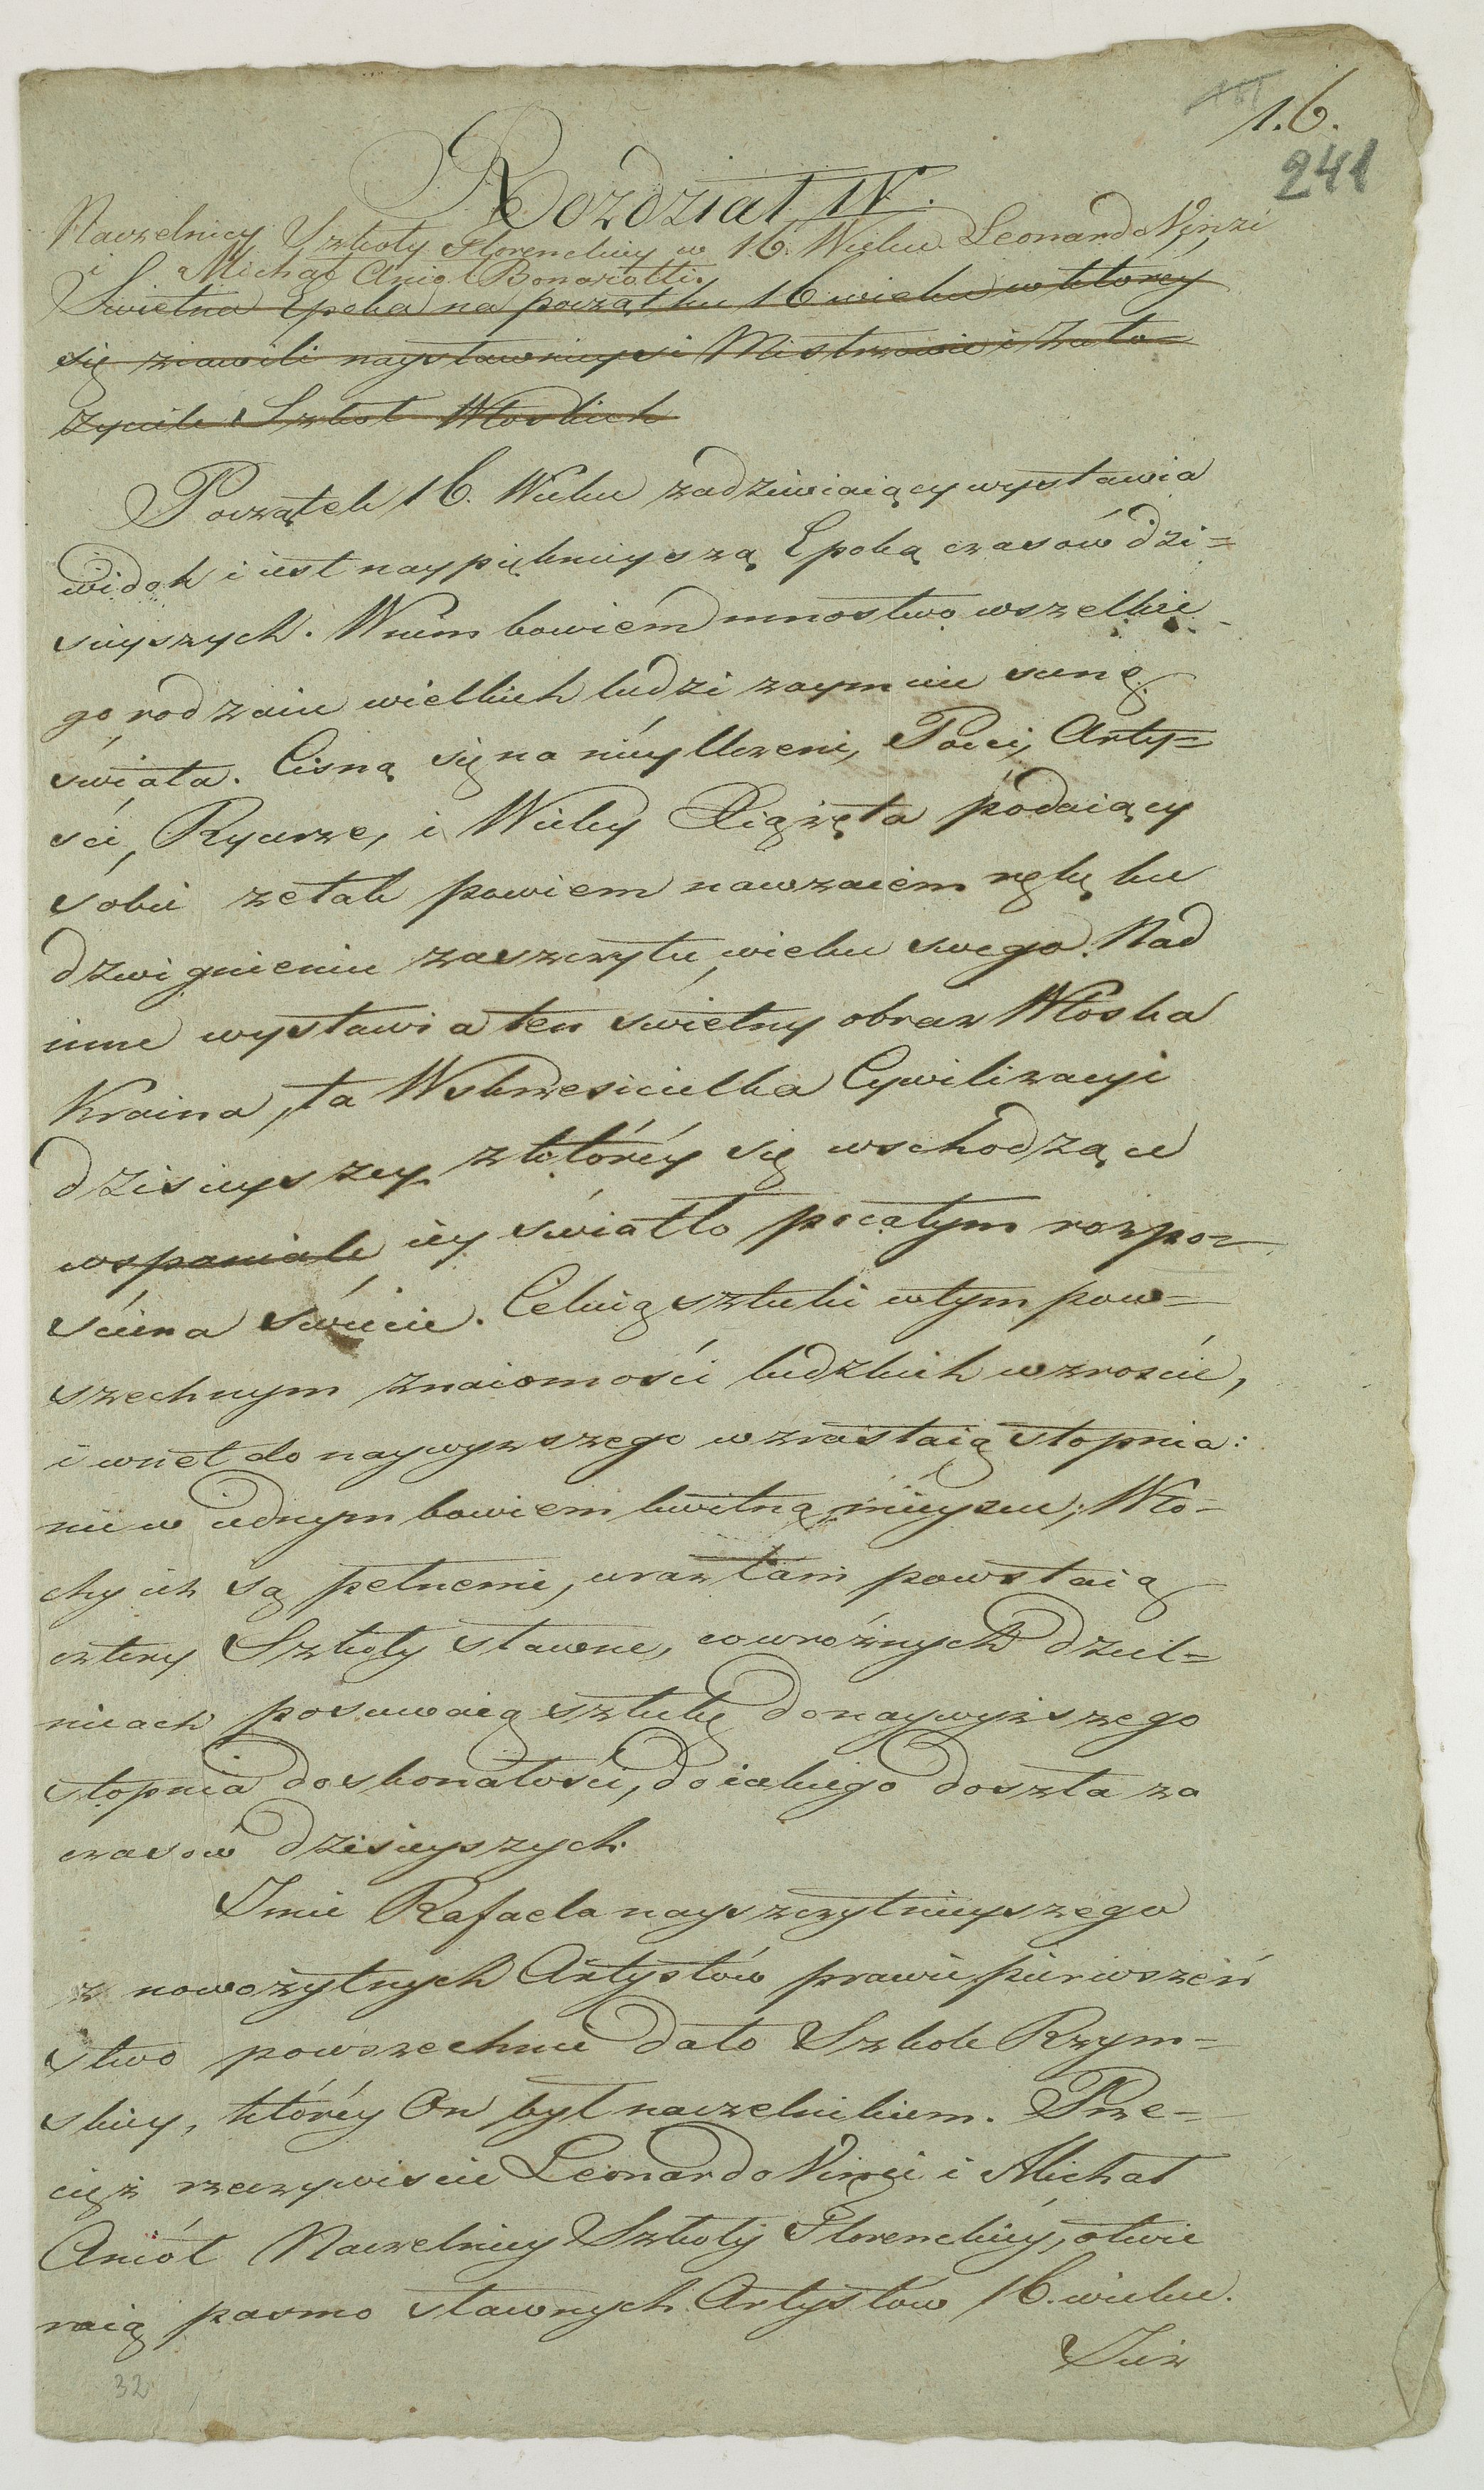 1.6.
241
Rozdział IV.
Naczelnicy Szkoły Florenckiey w 16. Wieku Leonard Vinzi
i Michał Anioł Bonarotti.
Swietna Epoka na początku 16 wieku w ktorey
się ziawili naysławnieysi Mistrzowie i Zało=
życiele Szkoł Włoskich
Początek 16. Wieku zadziwiaiący wystawia
widok i iest naypięknieyszą Epoką czasów dzi=
sieyszych. W nim bowiem mnostwo wszelkie
go rodzaiu wielkich ludzi zaymuie scenę
świata. Cisną się na niéy Uczeni, Poeci, Arty=
ści, Rycerze, i Wielcy Xiążęta podaiący
sobie ze tak powiem nawzaiem rękę ku
dzwignieniu zaszczytu wieku swego. Nad
inne wystawia ten świetny obraz Włoska
Kraina, ta Wskrzesicielka Cywilizacyi
dzisieyszey z któréy się wschodzące
wspaniale iey światło po całym rozpo=
ściera świecie. Celuią sztuki w tym pow=
szechnym znaiomości ludzkich wzroście,
i wnet do naywyzszego wzrastaią stopnia:
nie w iednym bowiem kwitną mieyscu; Wło=
chy ich są pełnemi, wraz tam powstaią
cztery Szkoły sławne, co w róźnych dziel=
nicach posuwaią sztukę do naywyższego
stopnia doskonałości, do iakiego doszła za
czasow dzisieyszych.
Imie Rafaela nayszczytnieyszego
z nowożytnych Artystów prawie pierwszeń
stwo powszechnie dało Szkole Rzym=
skiey, któréy On był naczelnikiem. Prze=
cięż rzeczywiscie Leonardo Vinci i Michał
Aniół Naczelnicy Szkoły Florenckiéy, otwie
raią pasmo sławnych Artystów 16. wieku.
Iuz
32